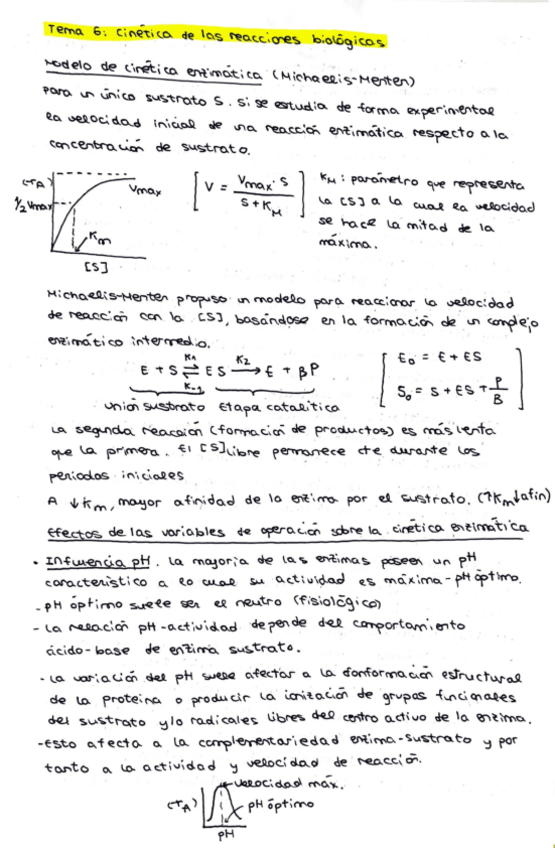 Tema 6: Cinética de las reacciones biológicas
Modelo de cinética enzimática (Michaelis-Menten)
Para un único sustrato S. Si se estudia de forma experimental
la velocidad inicial de una reacción enzimática respecto a la
concentración de sustrato.
(-rA)
1/2 Vmax
Vmax
Km
[S]
[ V = Vmax · S / S + KM ]
KM: parámetro que representa
la [S] a la cual la velocidad
se hace la mitad de la
máxima.
Michaelis-Menten propuso un modelo para reaccionar la velocidad
de reacción con la [S], basándose en la formación de un complejo
enzimático intermedio.
E + S ⇌ ES → E + βP
K1
K-1
K2
Unión sustrato Etapa catalítica
E0 = E + ES
S0 = S + ES + P/B
La segunda reacción (formación de productos) es más lenta
que la primera. El [S] libre permanece cte durante los
periodos iniciales
A ↓Km, mayor afinidad de la enzima por el sustrato. (↑Km↓afin)
Efectos de las variables de operación sobre la cinética enzimática
• Influencia pH. La mayoría de las enzimas poseen un pH
característico a lo cual su actividad es máxima - pH óptimo.
- pH óptimo suele ser el neutro (fisiológico)
- La relación pH-actividad depende del comportamiento
ácido-base de enzima sustrato.
- La variación del pH suele afectar a la conformación estructural
de la proteina o producir la ionización de grupos funcionales
del sustrato y/o radicales libres del centro activo de la enzima.
- Esto afecta a la complementariedad enzima-sustrato y por
tanto a la actividad y velocidad de reacción.
velocidad máx.
(-rA)
pH óptimo
pH